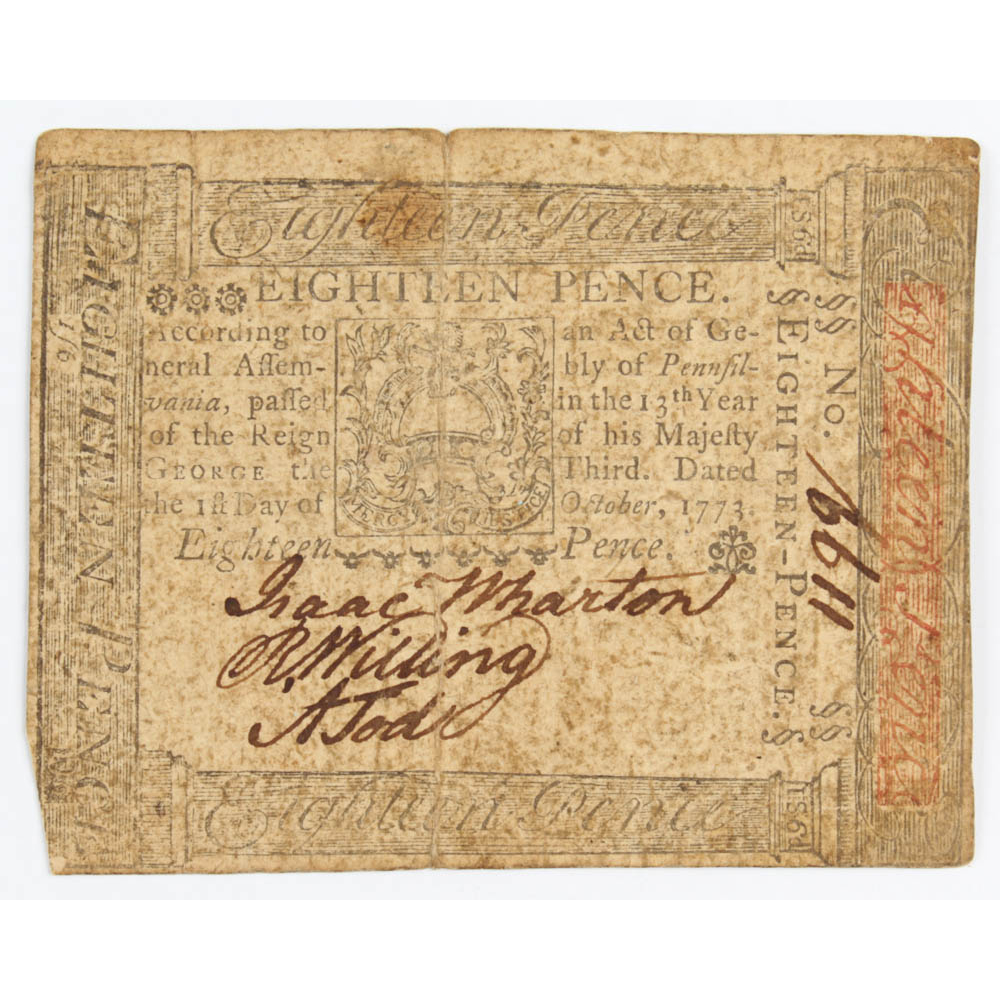 Eighteen Pence
1S6d
EIGHTEEN PENCE.
According to an Act of Ge-
neral Aſſem- bly of Pennſil-
vania, paſſed in the 13th Year
of the Reign of his Majeſty
GEORGE the Third. Dated
the 1ſt Day of October, 1773.
Eighteen Pence.
Isaac Wharton
R. Willing
A Tod
Eighteen Pence
1S6d
EIGHTEEN PENCE
§ EIGHTEEN-PENCE. §
§§ No. 1611 §§
Eighteen Pence